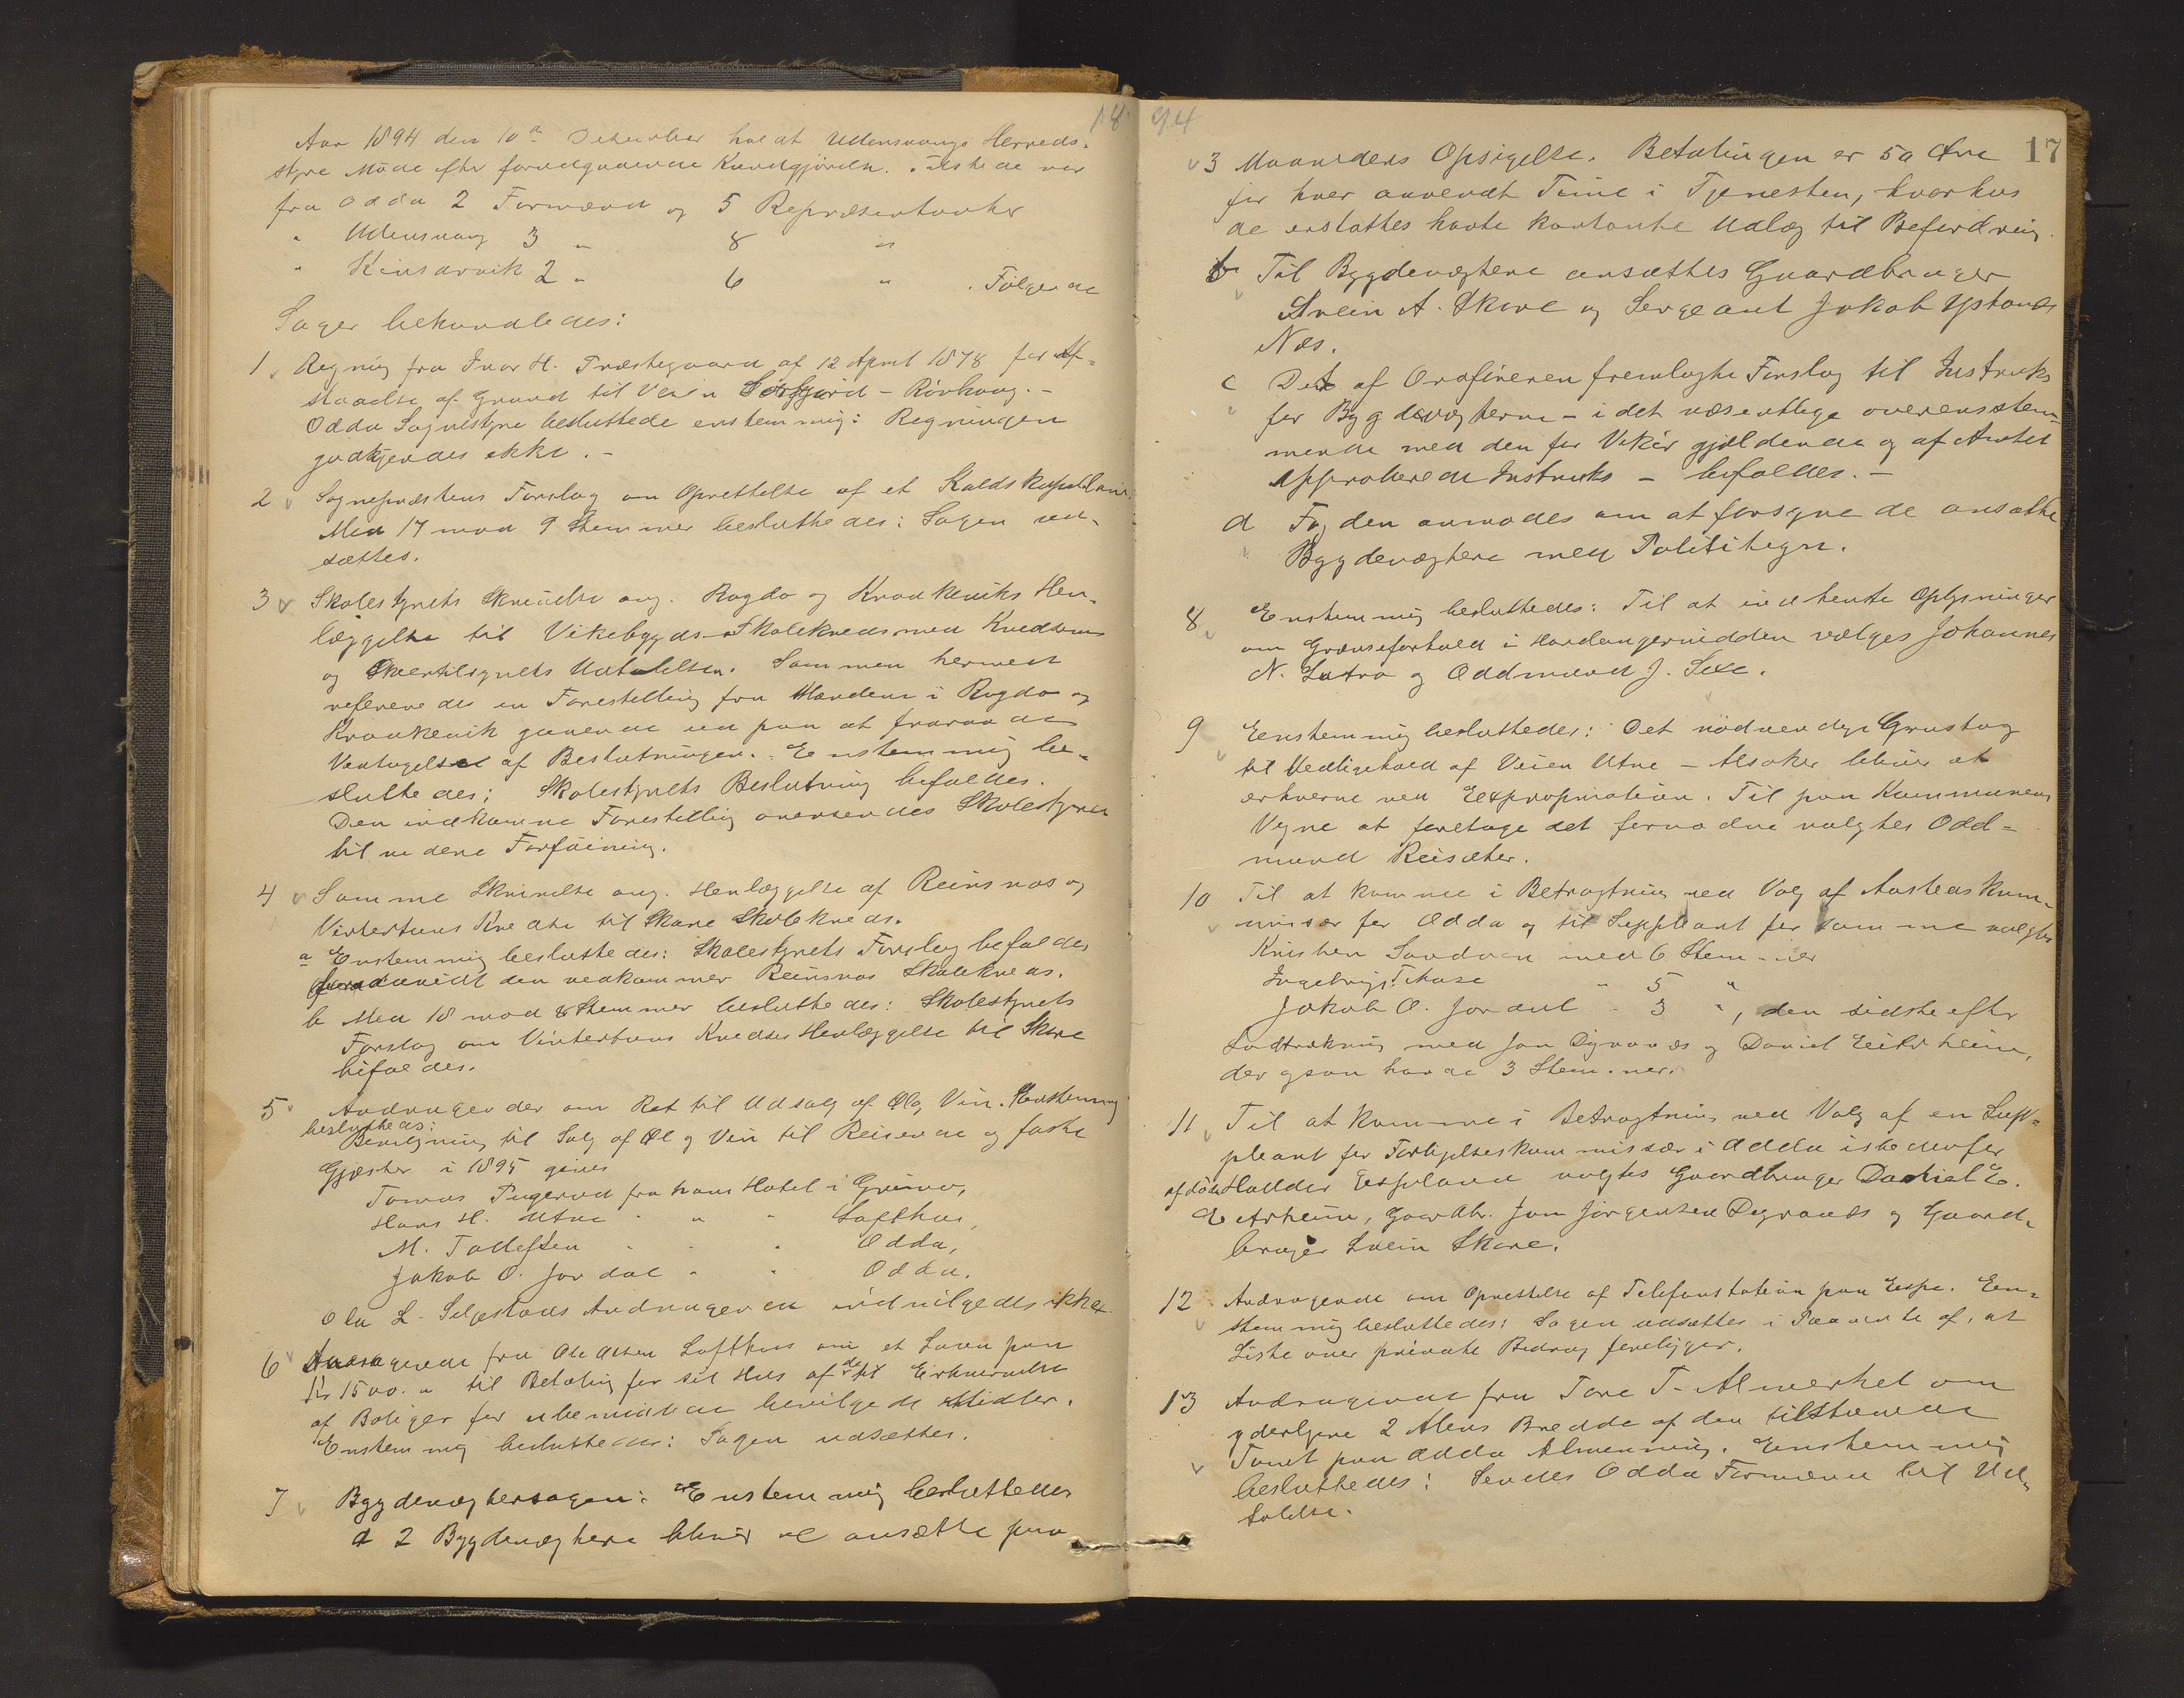 18
Aar 1894 den 10de December holdt Udensvangs Herreds-
styre Møde efter foregaaende Kundgjørelse. Tilstede var
fra Odda 2 Formænd og 5 Repræsentanter
" Udensvang 3 " 8 "
" Kinsarvik 2 " 6 " . Følgende
Sager behandledes:
1 Regning fra Ivar H. Træstegaard af 12 April 1878 for Af-
staaelse af Grund til Veien Sørfjord - Røvhaug. -
Odda Sognestyre besluttede enstemmig: Regningen
godkjendes ikke. -
2 Sognepræstens Forslag om Oprettelse af et Kaldskapellani.
Med 17 mod 9 Stemmer besluttedes: Sagen ud-
sættes.
3 Skolestyrets Skrivelse ang. Ragde og Kraakeviks Hen-
læggelse til Vikebygds Skolekreds med Kredsens
og Skoletilsynets Udtalelser. Sammen hermed
refereredes en Forestilling fra Mændene i Ragde og
Kraakevik gaaende ud paa at fraraade
Vedtagelse af Beslutningen. Enstemmig be-
sluttedes: Skolestyrets Beslutning bifaldes.
Den indkomne Forestilling oversendes Skolestyret
til videre Forføining.
4 Samme Skrivelse ang. Henlæggelse af Reinsnos og
Vintertuns Kredse til Skare Skolekreds.
a Enstemmig besluttedes: Skolestyrets Forslag bifaldes
forsaavidt den vedkommer Reinsnos Skolekreds.
b Med 18 mod 8 Stemmer besluttedes: Skolestyrets
Forslag om Vintertuns Kredses Henlæggelse til Skare
bifaldes.
5 Andragender om Ret til Udsalg af Øl og Vin. Enstemmig
besluttedes:
Bevilgning til Salg af Øl og Vin til Reisende og faste
Gjæster i 1895 gives
Tomas Pugerud fra hans Hotel i Grimo,
Hans H. Utne " " " Lofthus,
M. Tollefsen " " " Odda,
Jakob O. Jordal " " Odda.
Ola L. Seljestads Andragende indvilgedes ikke.
6 Andragende fra Ole Olsen Lofthus om et Laan paa
Kr 1500. " til Betaling for sit Hus af de til Erhvervelse
af Boliger for ubemidlede bevilgede Midler.
Enstemmig besluttedes: Sagen udsættes.
7 Bygdevægtersagen: Enstemmig besluttedes
a 2 Bygdevægtere bliver at ansætte paa
94
17
3 Maaneders Opsigelse. Betalingen er 50 Øre
for hver anvendt Time i Tjenesten, hvorhos
de erstattes havte kontante Udlæg til Befordring.
b Til Bygdevægtere ansættes Gaardbruger
Svein A. Skare og Sergeant Jakob Ystanes
Næs.
c Det af Ordføreren fremlagte Forslag til Instruks
for Bygdevægterne - i det væsentlige overensstem-
mende med den for Vikør gjældende og af Amtet
approberede Instruks - bifaldes. -
d Fogden anmodes om at forsyne de ansatte
Bygdevægtere med Polititegn.
8 Enstemmig besluttedes: Til at indhente Oplysninger
om Grænseforhold i Hardangervidden vælges Johannes
N. Lutro og Oddmund J. Sexe.
9 Eenstemmig besluttedes: Det nødvendige Grustag
til Vedligehold af Veien Utne - Alsaker bliver at
erhverve ved Expropriation. Til paa Kommunens
Vegne at foretage det fornødne valgtes Odd-
mund Reisæter.
10 Til at komme i Betragtning ved Valg af Aastedskom-
missær for Odda og til Suppleant for samme valgtes
Kristen Sandven med 6 Stemmer
Ingebrigt Tokase " 5 "
Jakob O. Jordal " 3 ", den sidste efter
Lodtrækning med Jon Digranæs og Daniel Eitrheim,
der ogsaa havde 3 Stemmer.
11 Til at komme i Betragtning ved Valg af en Sup-
pleant for Forligelseskommissær i Odda istedenfor
afdøde Halldor Espeland valgtes Gaardbruger Daniel E.
Eitrheim, Gaardbr. Jon Jørgensen Degranæs og Gaard-
bruger Svein Skare.
12 Andragende om Oprettelse af Telefonstation paa Espe. Een-
stemmig besluttedes: Sagen udsættes i Paavente af, at
Liste over private Bidrag foreligger.
13 Andragende fra Tore T. Almerket om
yderligere 2 Alens Bredde af den tilstaaede
Tomt paa Odda Almenning. Eenstemmig
besluttedes: Sendes Odda Formænd til Ud-
talelse.